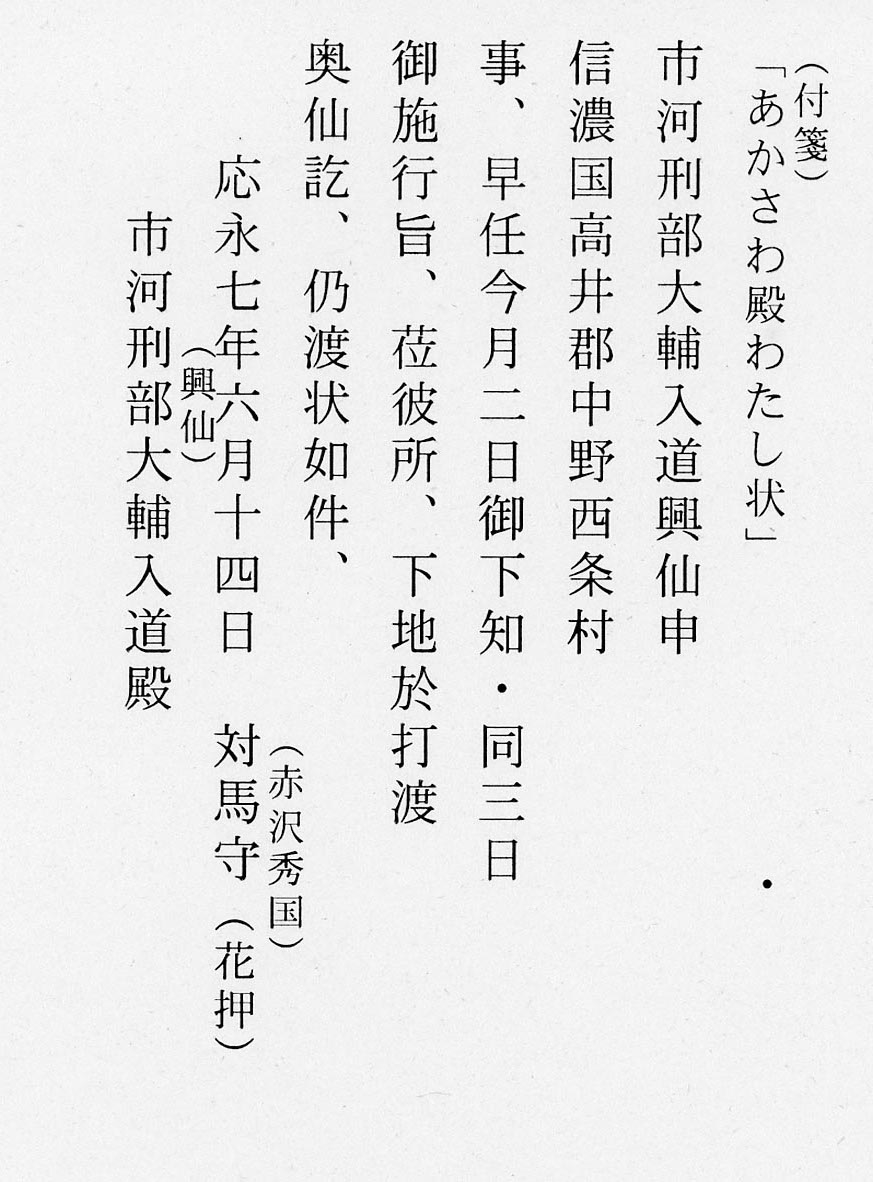 （付箋）
「あかさわ殿わたし状」
市河刑部大輔入道興仙申
信濃国高井郡中野西条村
事、早任今月二日御下知・同三日
御施行旨、莅彼所、下地於打渡
奥仙訖、仍渡状如件、
（赤沢秀国）
応永七年六月十四日　対馬守（花押）
（興仙）
市河刑部大輔入道殿